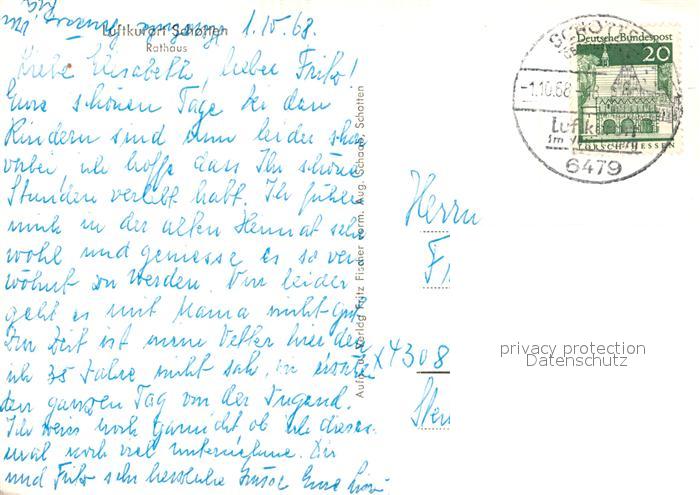 1.10.68.
Luftkurort Schotten
Rathaus
Liebe Elisabeth, lieber Fritz!
Eure schönen Tage bei den
Kindern sind nun leider schon
vorbei, ich hoffe dass Ihr schöne
Stunden verlebt habt. Ich fühle
mich in der alten Heimat sehr
wohl und geniesse es so ver
wöhnt zu werden. Nur leider
geht es mit Mama nicht gut
Zur Zeit ist mein Vetter hier den
ich 35 Jahre nicht sah, wir
den ganzen Tag von der Jugend.
Ich weiss noch garnicht ob ich dieses
mal noch viel unternehme. Dir
und Fritz sehr herzliche Grüsse Eure
Aufn. u. Verlag Fritz Fischer vorm. Aug. Schaub, Schotten
SCHOTTEN
-1.10.68
Luftkurort
im
6479
Deutsche Bundespost
20
LORSCH/HESSEN
Herrn
F
x4308
privacy protection
Datenschutz